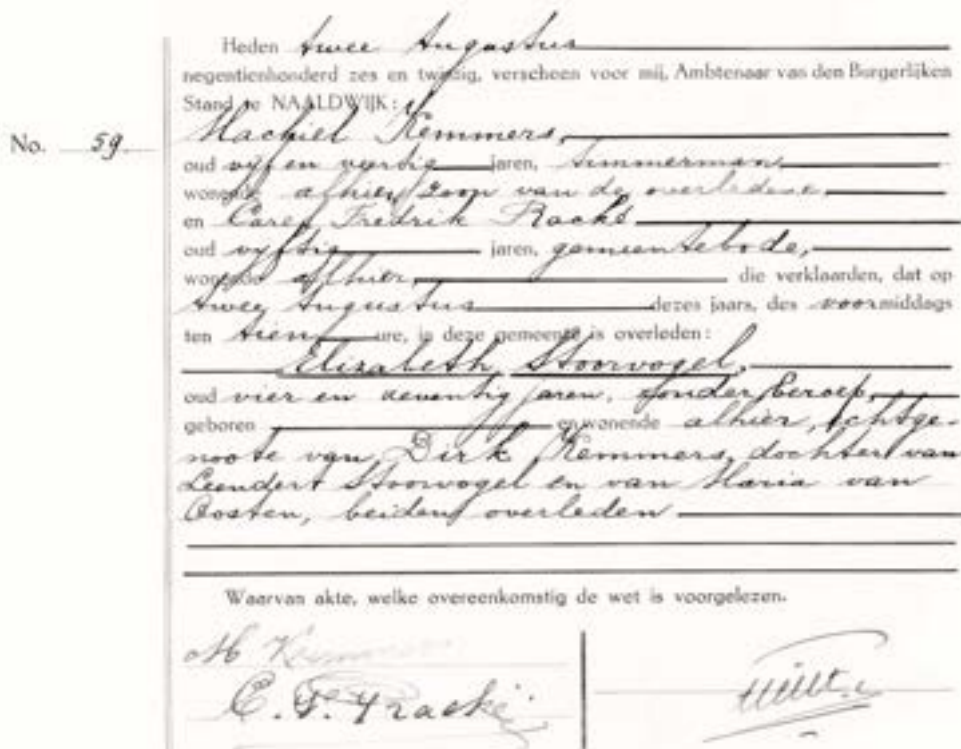 Heden twee Augustus
negentienhonderd zes en twintig, verscheen voor mij, Ambtenaar van den Burgerlijken
Stand te NAALDWIJK:
No. 59.
Machiel Kemmers,
oud vijf en veertig jaren, timmerman
wonende alhier, zoon van de overledene,
en Carel Fredrik
oud vijftig jaren, gemeentebode,
wonende alhier, die verklaarden, dat op
twee Augustus dezes jaars, des voormiddags
ten tien ure, in deze gemeente is overleden:
Elizabeth Stoorvogel,
oud vier en zeventig jaren, zonder beroep,
geboren en wonende alhier, echtge-
noote van Dirk Kemmers, dochter van
Leendert Stoorvogel en van Maria van
Oosten, beiden overleden
Waarvan akte, welke overeenkomstig de wet is voorgelezen.
M Kemmers
C. F.